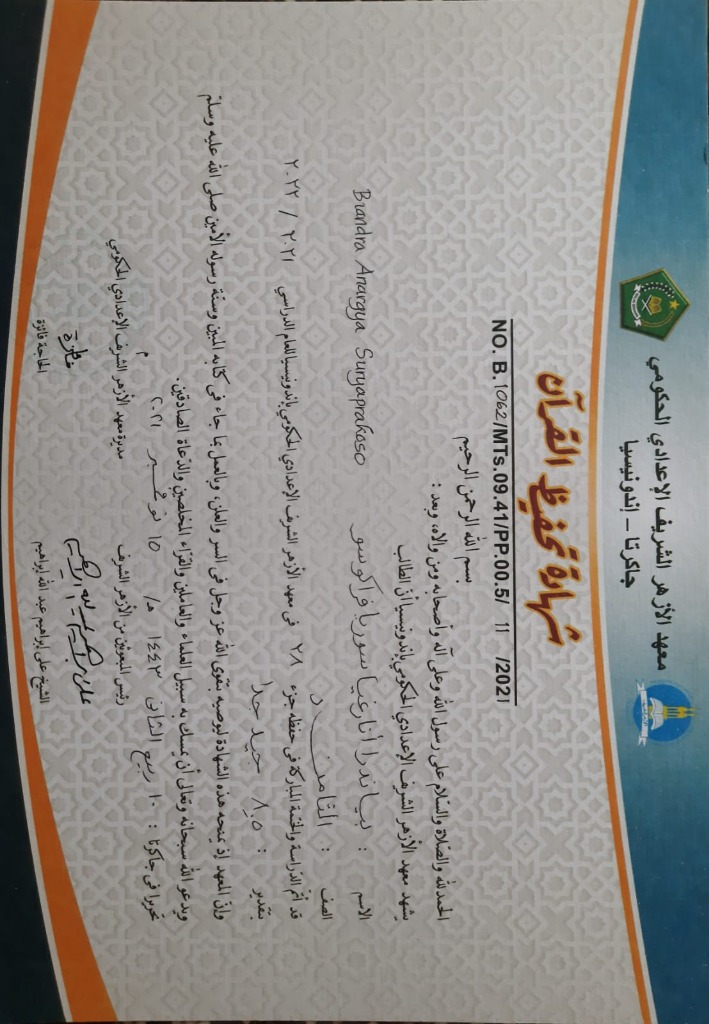 معهد الأزهر الشريف الإعدادي الحكومي
جاكرتا - إندونيسيا
شهادة تحفيظ القرآن
NO. B. 1062/MTs.09.41/PP.00.5/ 11 /2021
بسم الله الرحمن الرحيم
الحمد لله والصّلاة والسّلام على رسول الله وعلى آله وأصحابه ومن والاه، وبعد :
يشهد معهد الأزهر الشريف الإعدادي الحكومي بإندونيسيا أنّ الطالب
الاسم : بياندرا أنارغيا سوريا فراكوسو Biandra Anargya Suryaprakoso
الصف : الثامن د
قد أتمّ الدّراسة والختمة المباركة في حفظه جزء ٢٨ في معهد الأزهر الشريف الإعدادي الحكومي بإندونيسيا للعام الدراسي ٢٠٢١ / ٢٠٢٢
بتقدير : ٨,٥ جيد جدا
وإنّ المعهد إذ يمنحه هذه الشهادة ليوصيه بتقوى الله عز وجل في السر والعلن، وبالعمل بما جاء في كتابه المبين وسنّة رسوله الأمين صلى الله عليه وسلم
ويدعو الله سبحانه وتعالى أن يمسك به سبيل العلماء والعاملين والقرّاء المخلصين والدّعاة الصادقين.
تحريرا في جاكرتا : ١٠ ربيع الثاني ١٤٤٣ هـ/ ١٥ نوفمبر ٢٠٢١ م
رئيس المبعوثين من الأزهر الشريف
مديرة معهد الأزهر الشريف الإعدادي الحكومي
الشيخ علي إبراهيم عبد الله إبراهيم
الحاجة فائزة